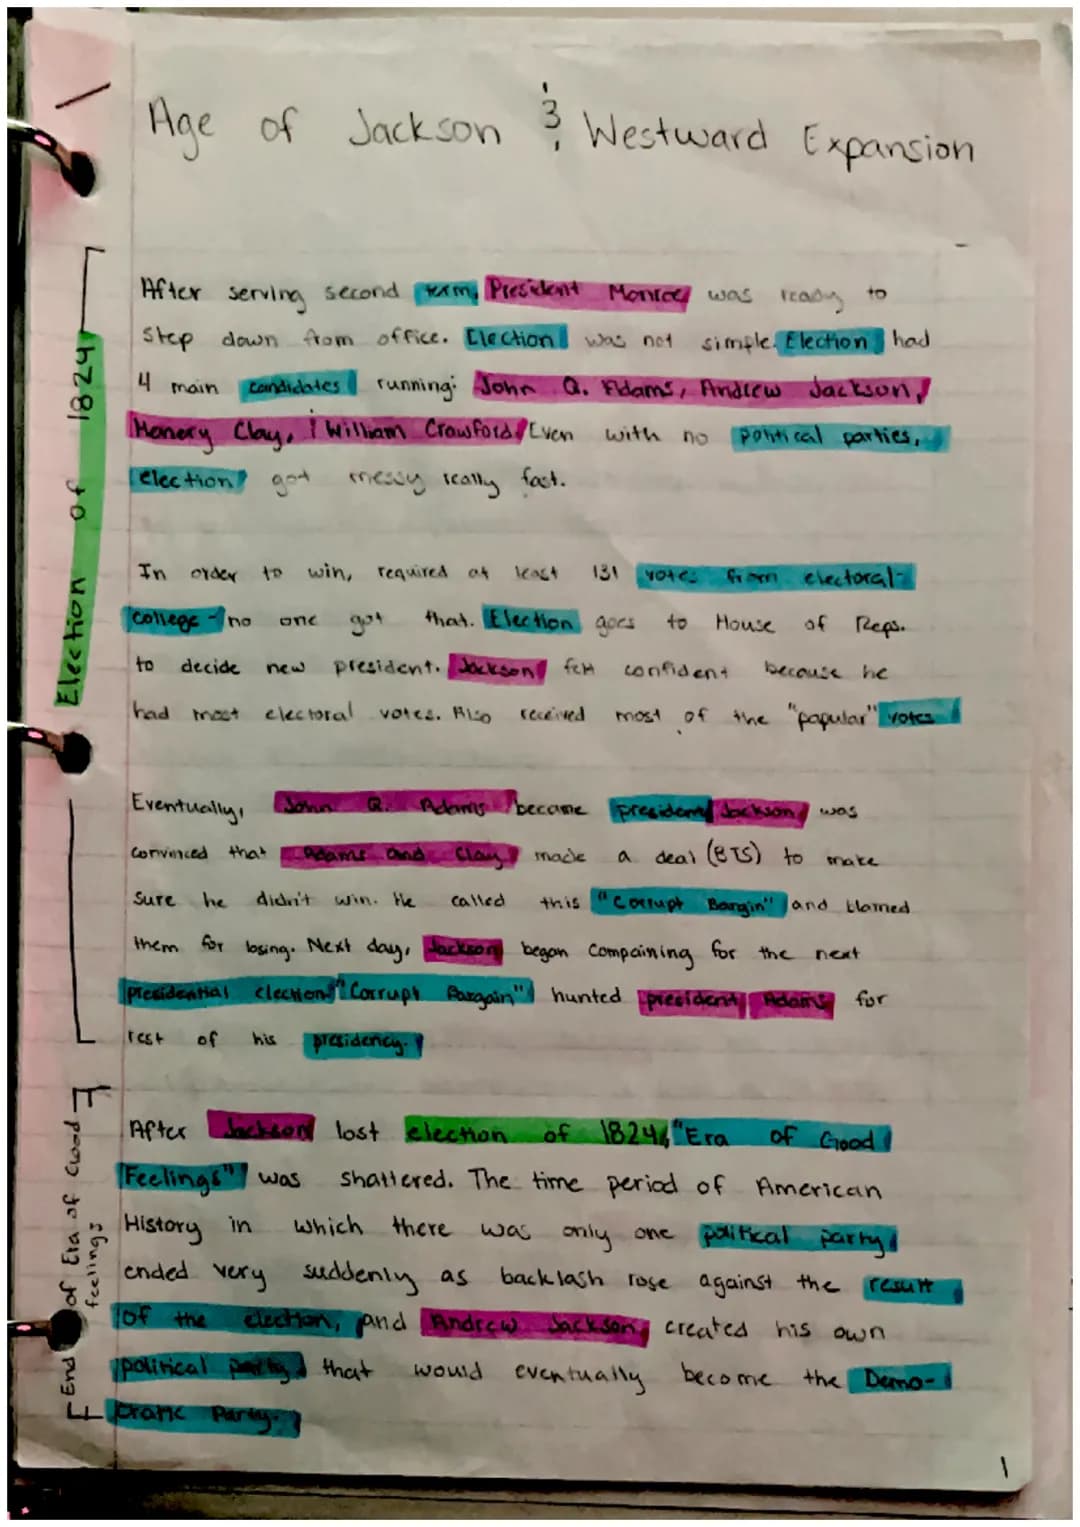 Age of Jackson & Westward Expansion
Election of 1824
After serving second term, President Monroe was ready to
step down from office. Election was not simple. Election had
4 main candidates running: John Q. Adams, Andrew Jackson,
Henery Clay, & William Crawford. Even with no political parties,
election got messy really fast.
In order to win, required at least 131 votes from electoral-
college - no one got that. Election goes to House of Reps.
to decide new president. Jackson felt confident because he
had most electoral votes. Also received most of the "popular" votes
Eventually, John Q. Adams became president Jackson was
convinced that Adams and Clay made a deal (BTS) to make
sure he didn't win. He called this "Corrupt Bargin" and blamed
them for losing. Next day, Jackson began compaining for the next
presidential election. "Corrupt Bargain" hunted president Adams for
rest of his presidency.
End of Era of Good
feelings
After Jackson lost election of 1824, "Era of Good
Feelings" was shattered. The time period of American
History in which there was only one political party,
ended very suddenly as backlash rose against the result
of the election, and Andrew Jackson created his own
political party that would eventually become the Demo-
cratic Party.
1